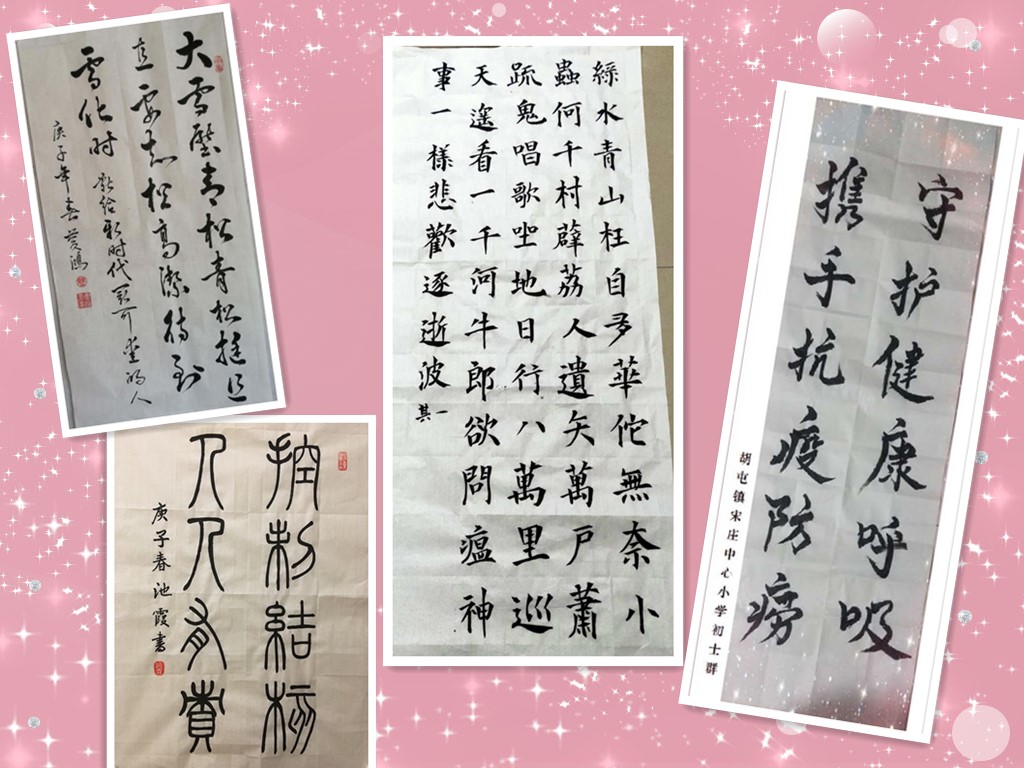 大雪壓青松青松挺且
直要知松高潔待到
雪化时
给新时代最可爱的人
庚子年春
控制結核
人人有責
庚子春池霞書
綠水青山枉自多華佗無奈小
蟲何千村薜荔人遺矢萬戶蕭
疏鬼唱歌坐地日行八萬里巡
天遙看一千河牛郎欲問瘟神
事一樣悲歡逐逝波
其一
守护健康呼吸
携手抗疫防痨
胡屯镇宋庄中心小学初士群